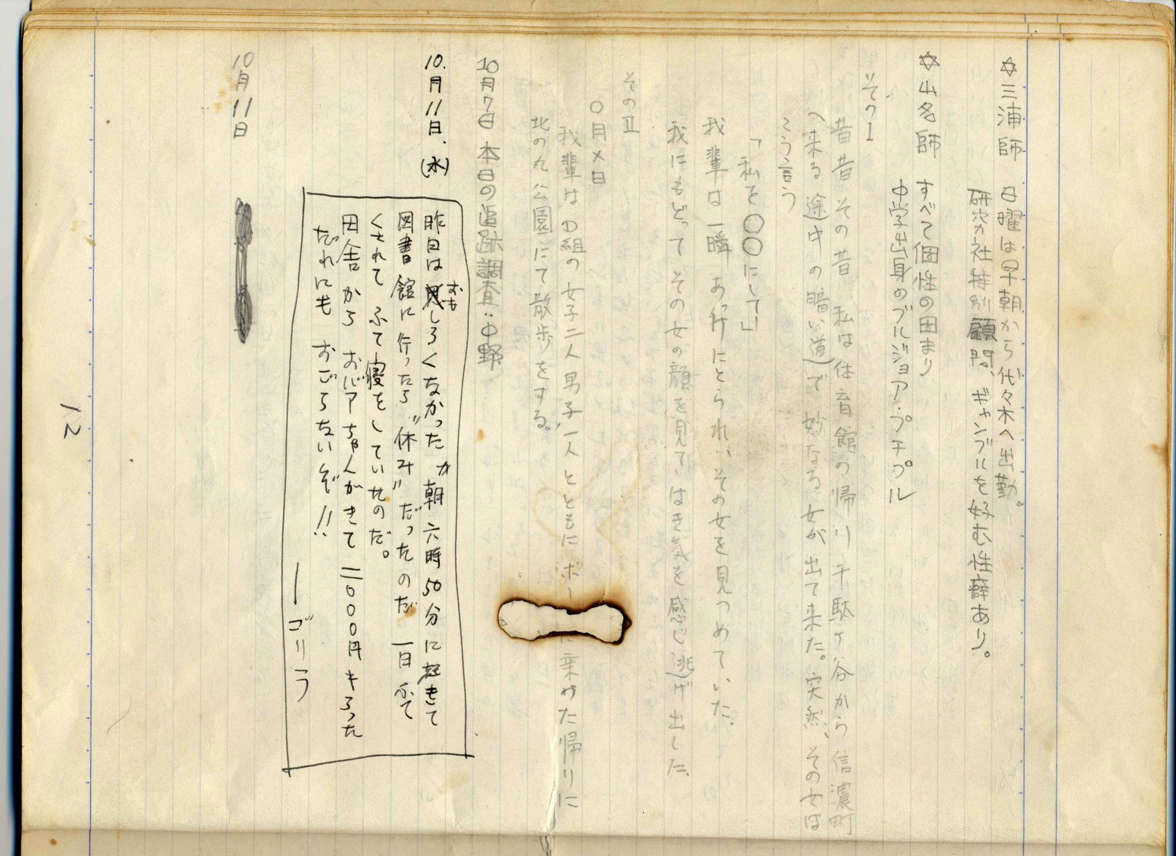 ✡三浦師 日曜は早朝から代々木へ出勤。
研究社特別顧問、ギャンブルを好む性癖あり。
✡山名師 すべて個性の固まり
中学出身のブルジョア・プチブル
その I
昔昔その昔、私は体育館の帰り千駄ヶ谷から信濃町
へ来る途中の暗い道で妙なる女が出て来た。突然、その女は
こう言う
「私を〇〇にして!」
我輩は一瞬あっけにとられ、その女を見つめていた。
我にもどってその女の顔を見て、はき気を感じ逃げ出した。
その II
〇月×日
我輩はD組の女子二人男子一人とともにボー に乗けた帰りに
北の丸公園にて散歩をする。
10月7日 本日の追跡調査:中野
10.月11日.(水)
昨日はおもしろくなかったガ朝六時50分に起きて
図書館に行ったら“休み”だったのだ 一日
くされてふて寝をしていたのだ。
田舎からおバアちゃんがきて二000円もらった
だれにもおごらないぞ!!
―ゴリラ
10月11日
12